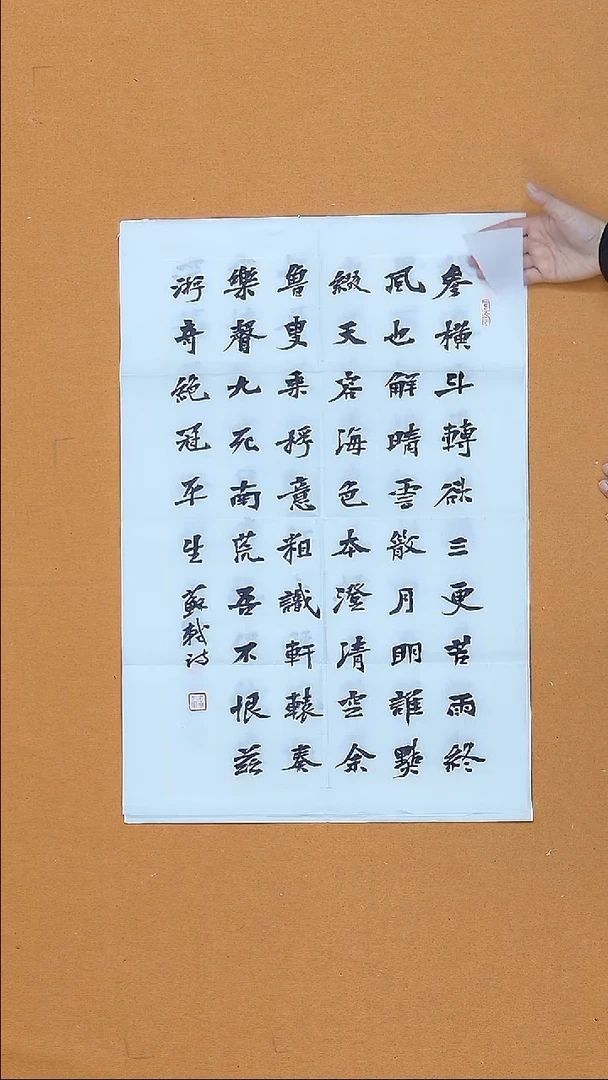 參橫斗轉欲三更苦雨終
風也解晴雲散月明誰點
綴天容海色本澄清空余
魯叟乘桴意粗識軒轅奏
樂聲九死南荒吾不恨茲
游奇絕冠平生蘇軾詩